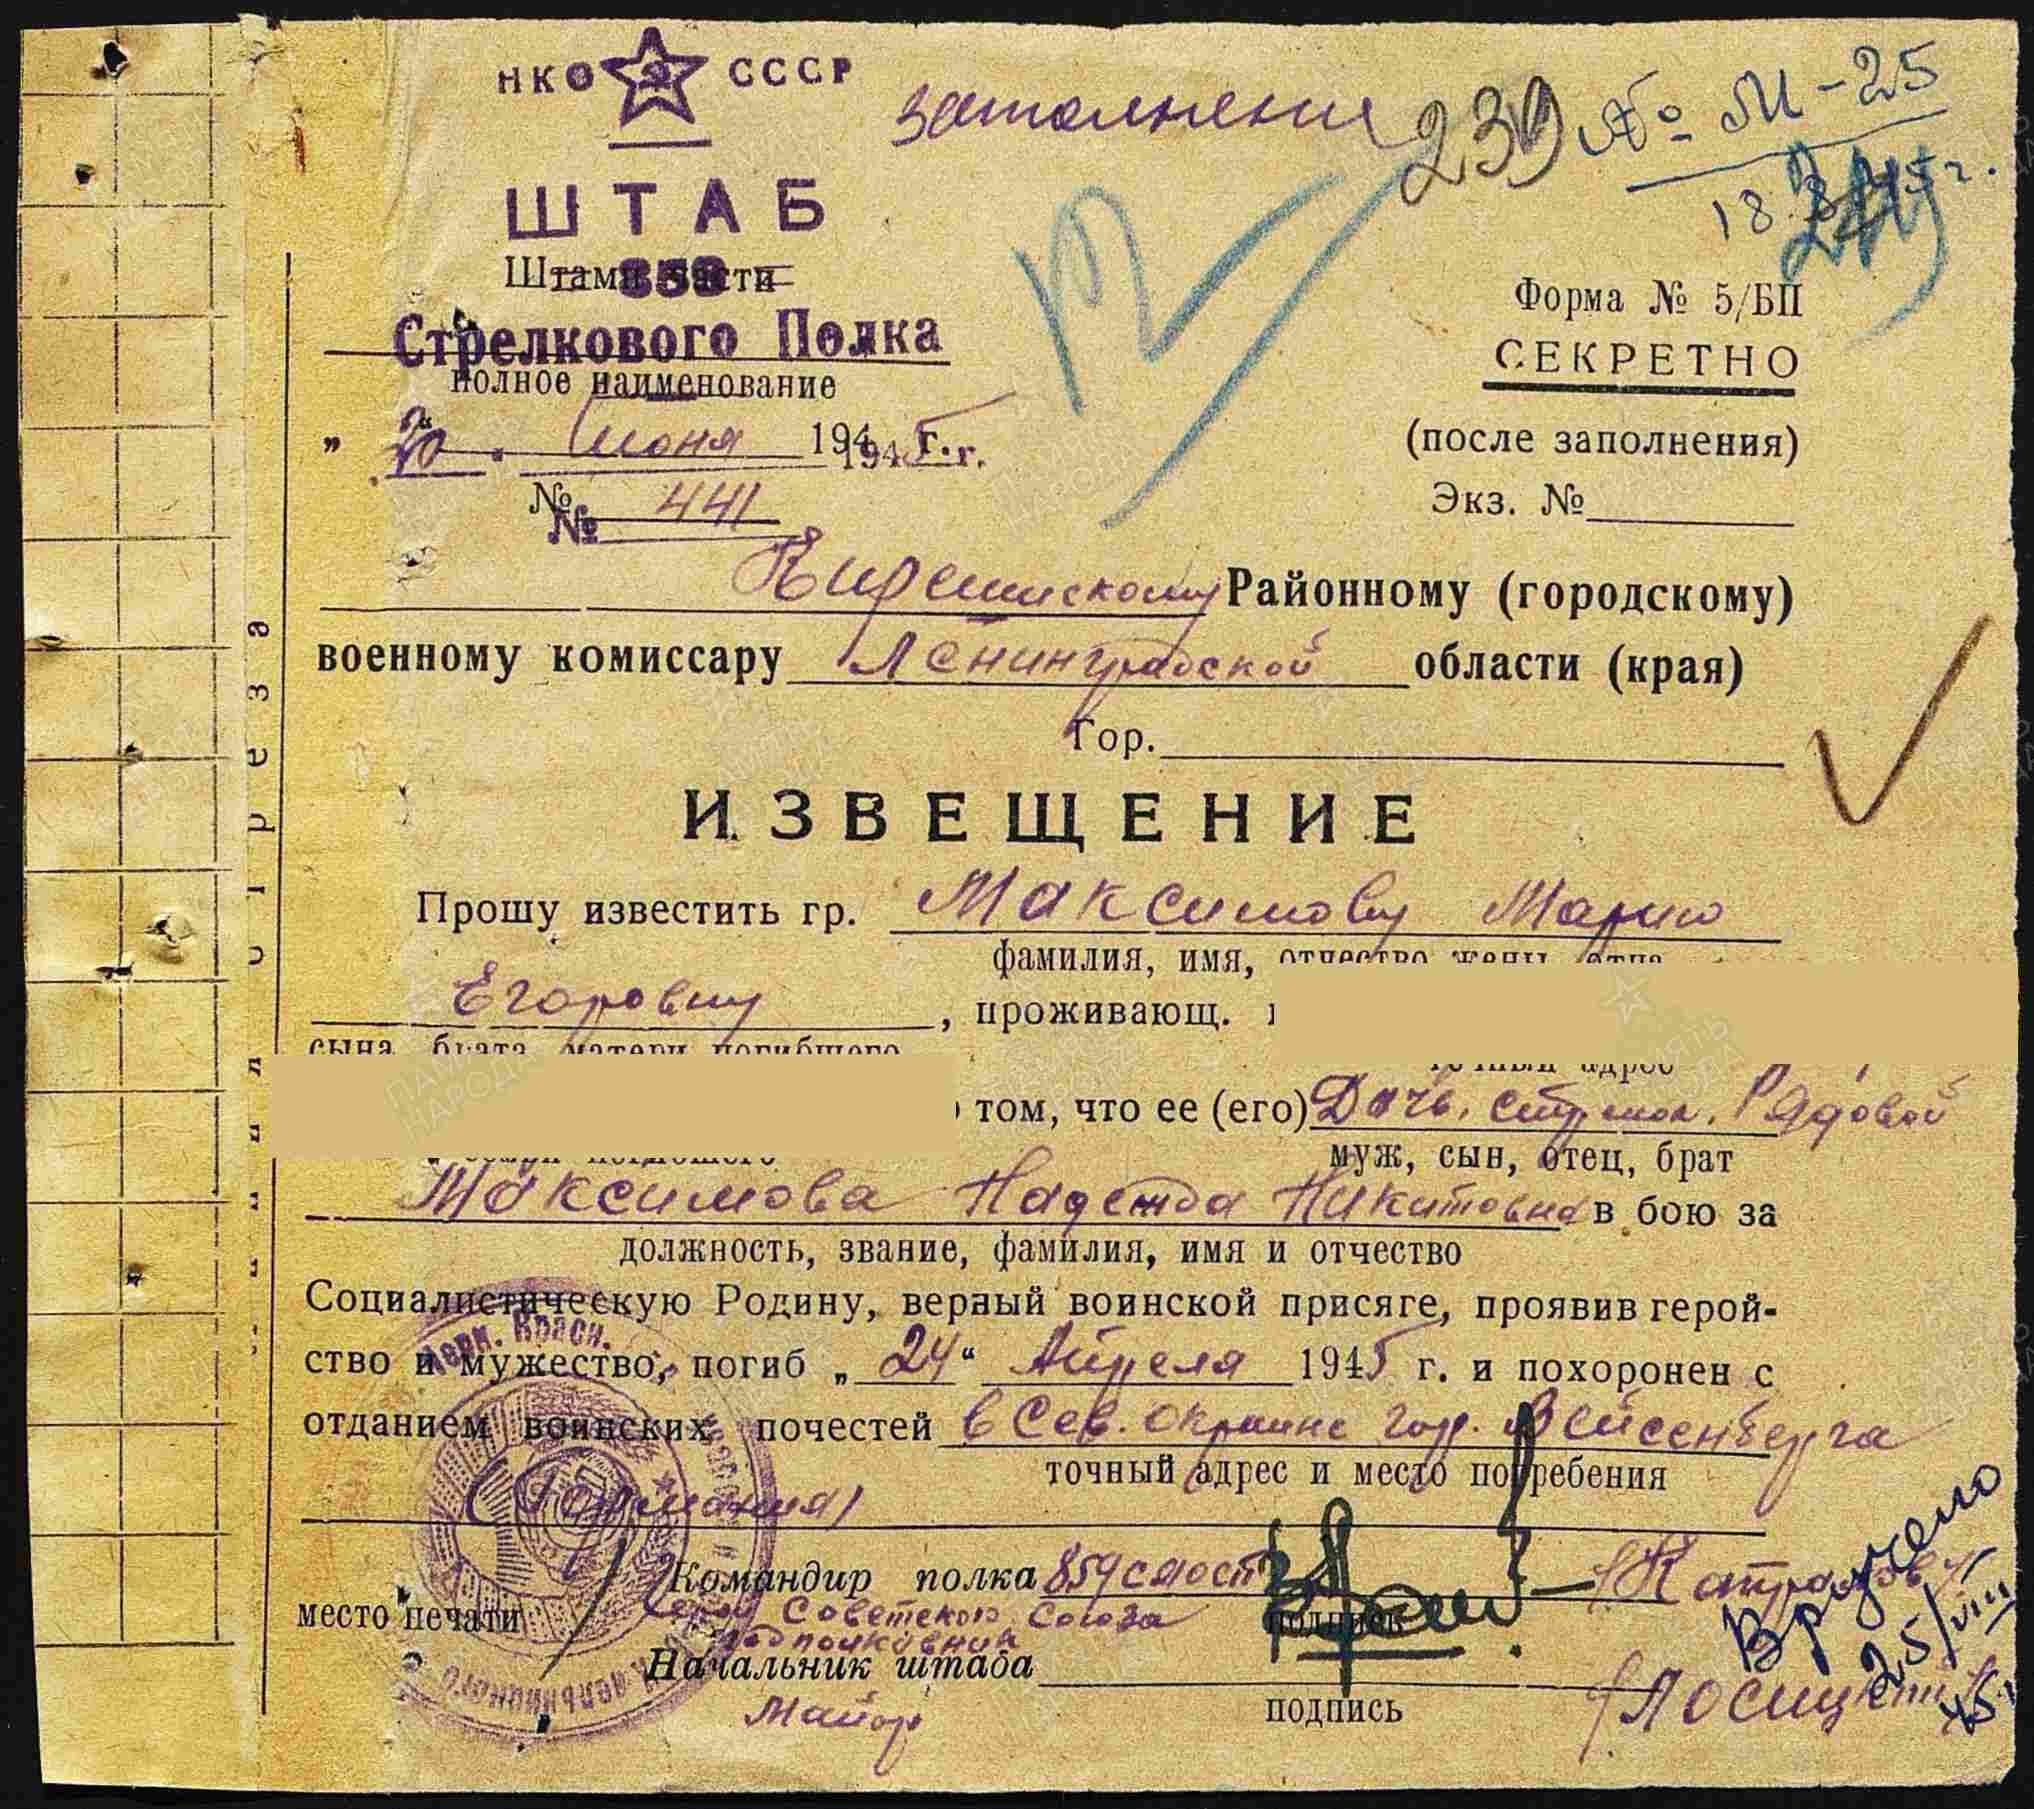 НКО СССР
заполнени 239 № М-25
ШТАБ
18.
Штамп части
859
Форма № 5/БП
Стрелкового Полка
СЕКРЕТНО
полное наименование
(после заполнения)
„ 20 " Июня 1945 г.
Экз. №
№ 441
Киришскому Районному (городскому)
военному комиссару Ленинградской области (края)
Гор.
ИЗВЕЩЕНИЕ
Прошу известить гр. Максимову Марию
фамилия, имя, отчество жены, отца
Егоровну, проживающ.
сына, брата, матери погибшего
точный адрес
том, что ее (его) Дочь, стрелок. Рядовой
семьи погибшего
муж, сын, отец, брат
Максимова Надежда Никитовна в бою за
должность, звание, фамилия, имя и отчество
Социалистическую Родину, верный воинской присяге, проявив герой-
ство и мужество, погиб „24“ Апреля 1945 г. и похоронен с
отданием воинских почестей в Сев. окраине гор. Вейсенберга
точный адрес и место погребения
(Германия)
Командир полка 859
Герой Советского Союза
подпись
место печати
Подполковник
Начальник штаба
Майор
подпись
Вручено
25/VIII
45 г